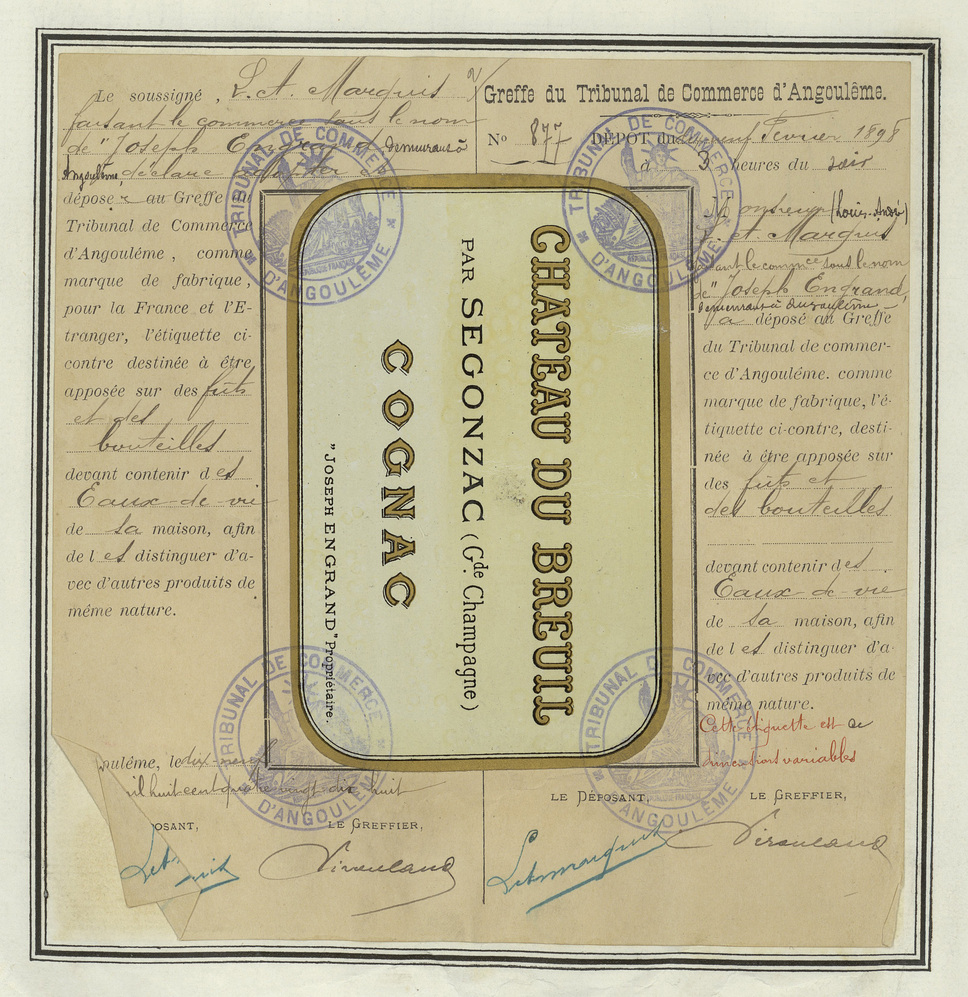 Le soussigné, L. A. Marquis
faisant le commerce sous le nom
de "Joseph Engrand" demeurant à
Angoulême, déclare
dépose r au Greffe du
Tribunal de Commerce
d'Angoulême, comme
marque de fabrique,
pour la France et l'E-
tranger, l'étiquette ci-
contre destinée à être
apposée sur des fûts
et des
bouteilles
devant contenir d es
Eaux-de-vie
de sa maison, afin
de l es distinguer d'a-
vec d'autres produits de
même nature.
oulême, le dix-neuf
mil huit cent quatre vingt dix huit
OSANT,
LE GREFFIER,
Greffe du Tribunal de Commerce d'Angoulême.
N° 877 DÉPOT du neuf Fevrier 1898
à 3 heures du soir
Monsieur (Louis-André)
L. A. Marquis
faisant le commce sous le nom
de "Joseph Engrand,
demeurant à Angoulême
a déposé au Greffe
du Tribunal de commer-
ce d'Angoulême. comme
marque de fabrique, l'é-
tiquette ci-contre, desti-
née à être apposée sur
des fûts et
des bouteilles
devant contenir des
Eaux-de-vie
de sa maison, afin
de l es distinguer d'a-
vec d'autres produits de
même nature.
Cette étiquette est de
dimensions variables
LE DÉPOSANT,
LE GREFFIER,
CHATEAU DU BREUIL
PAR SEGONZAC (Gde Champagne)
COGNAC
"JOSEPH ENGRAND" Propriétaire.
TRIBUNAL DE COMMERCE
D'ANGOULÊME
TRIBUNAL DE COMMERCE
D'ANGOULÊME
TRIBUNAL DE COMMERCE
D'ANGOULÊME
TRIBUNAL DE COMMERCE
D'ANGOULÊME